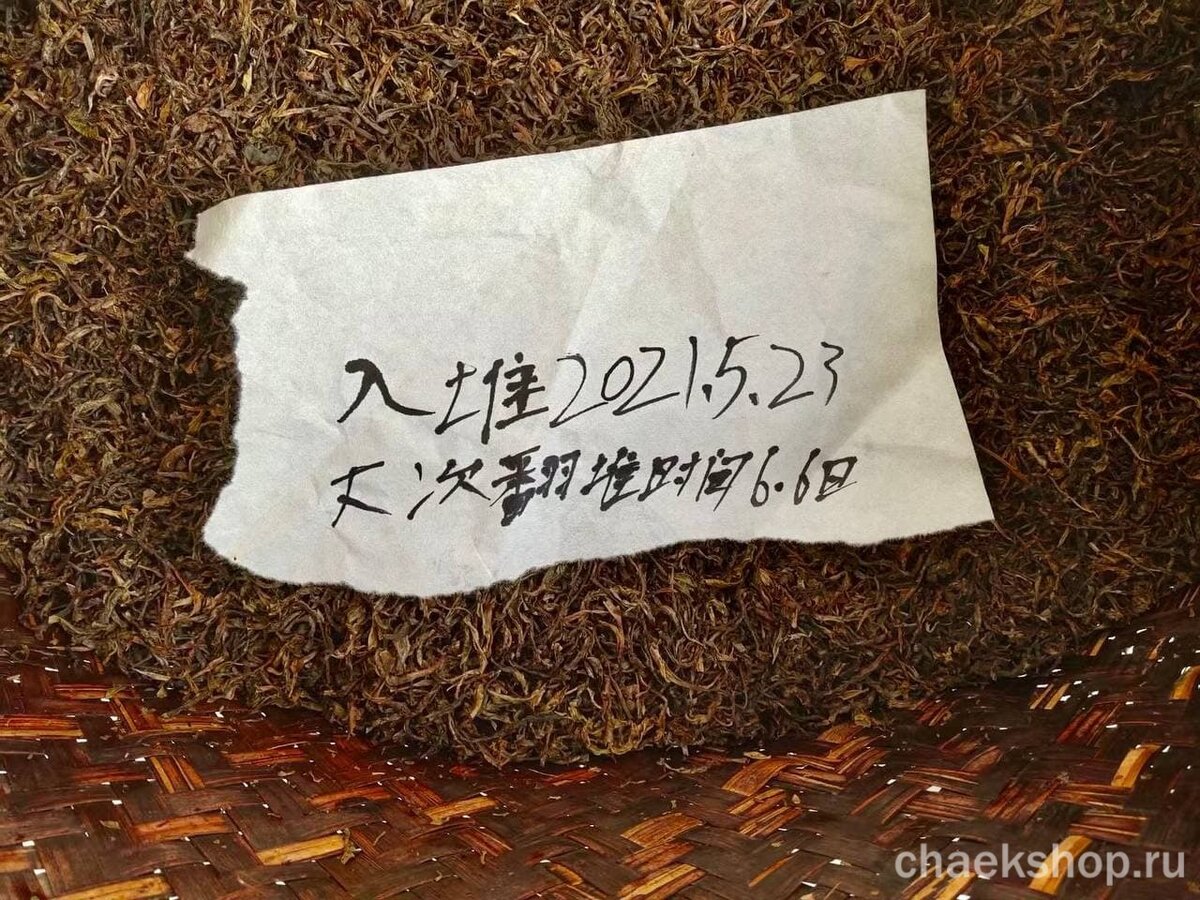 入堆2021.5.23
大次翻堆时间6.6日
chaekshop.ru